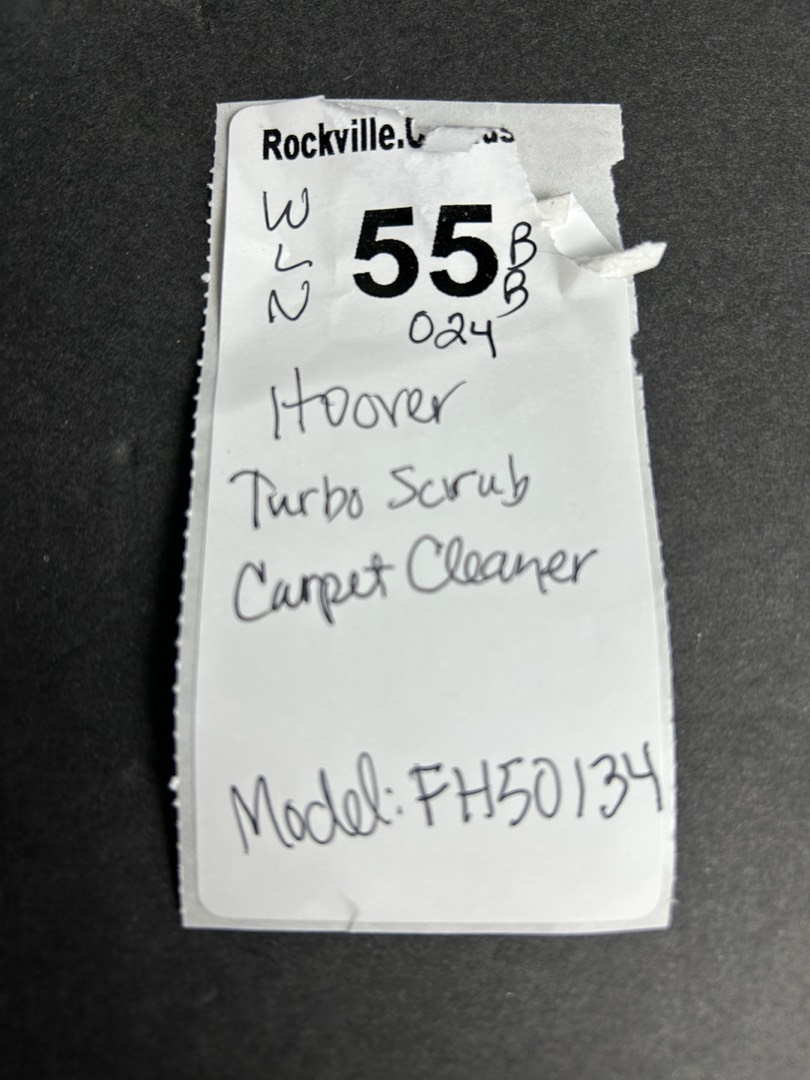 Rockville.
W
L
N
55 B
B
024
Hoover
Turbo Scrub
Carpet Cleaner
Model: FH50134